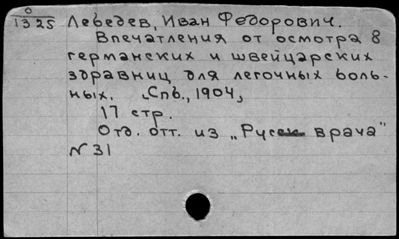 О
1325
Лебедев, Иван Федорович.
Впечатления от осмотра 8
германских и швейцарских
здравниц для легочных боль-
ных. Спб., 1904,
17 стр.
Отд. отт. из „Русск врача"
N 31